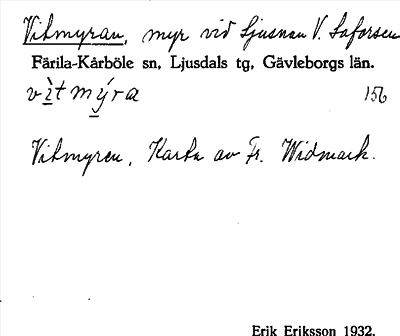 Vitmyran, myr vid Ljusnan V. Laforsen
Färila-Kårböle sn, Ljusdals tg, Gävleborgs län.
vìtmýra 156
Vitmyren, Karta av Fr. Widmark.
Erik Eriksson 1932.